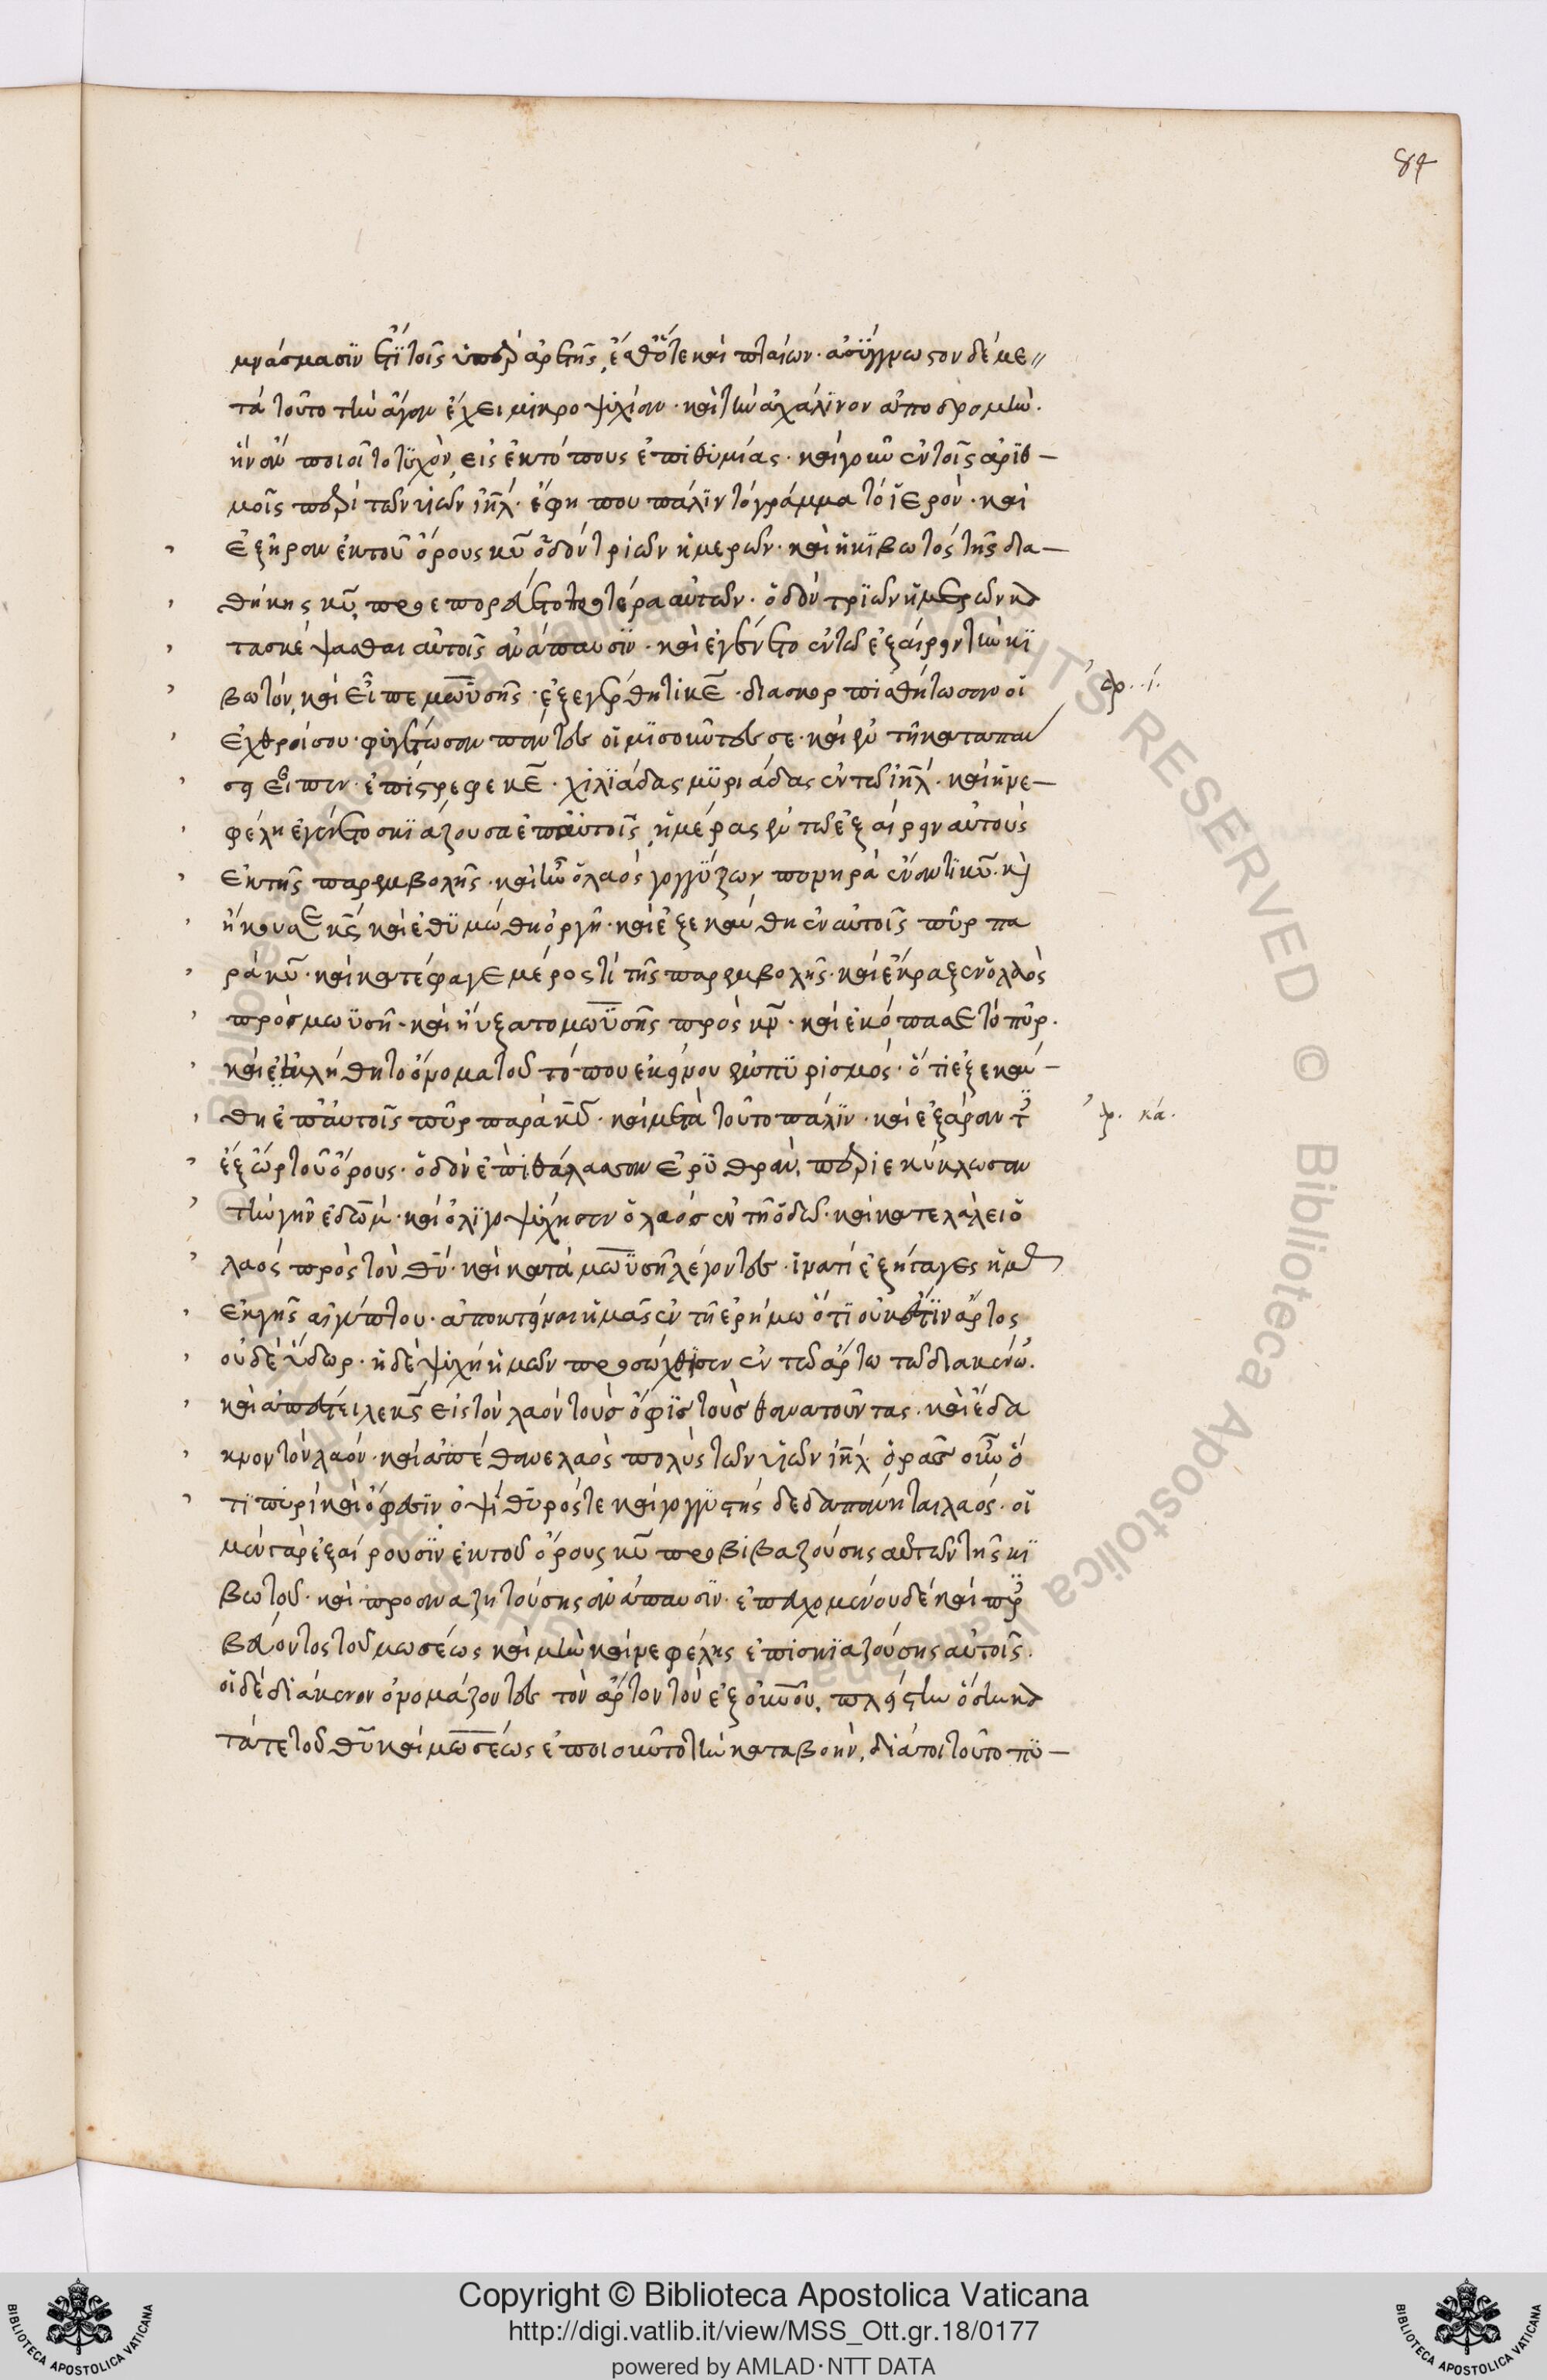 84
μνάσμασιν ἔτι τοῖς ὑπὲρ ἀρετῆς, ἔσθ' ὅτε καὶ πταίων. ἀσύγγνωστον δὲ με
τὰ τοῦτο τὴν ἄγαν ἔχει μικροψυχίαν. καὶ τὴν ἀχάλινον ἀποδρομὴν.
ἣν ἂν ποιοῖτο τυχὸν, εἰς ἐκτόπους ἐπιθυμίας. καὶ γοῦν ἐν τοῖς ἀριθ
μοῖς περὶ τῶν υἱῶν ιηλ. ἔφη που πάλιν τὸ γράμμα τὸ ἱερὸν. καὶ
ἐξῆραν ἐκ τοῦ ὄρους κυ ὁδὸν τριῶν ἡμερῶν. καὶ ἡ κιβωτὸς τῆς δια
θήκης κυ, προεπορεύετο προτέρα αὐτῶν. ὁδὸν τριῶν ἡμερῶν κα
τασκέψασθαι αὐτοῖς ἀνάπαυσιν. καὶ ἐγένετο ἐν τῷ ἐξαίρειν τὴν κι
βωτὸν, καὶ εἶπε μωϋσῆς. ἐξεγέρθητι κε. διασκορπισθήτωσαν οἱ
ἐχθροί σου. φυγέτωσαν πάντες οἱ μισοῦντες σε. καὶ ἐν τῇ καταπαύ
σει εἶπεν. ἐπίστρεφε κε. χιλιάδας μυριάδας ἐν τῷ ιηλ. καὶ ἡ νε
φέλη ἐγένετο σκιάζουσα ἐπ' αὐτοῖς, ἡμέρας ἐν τῷ ἐξαίρειν αὐτοὺς
ἐκ τῆς παρεμβολῆς. καὶ ἦν ὁ λαὸς γογγύζων πονηρὰ ἔναντι κυ. καὶ
ἤκουσε κς καὶ ἐθυμώθη ὀργῇ. καὶ ἐξεκαύθη ἐν αὐτοῖς πῦρ πα
ρὰ κυ. καὶ κατέφαγε μέρος τὶ τῆς παρεμβολῆς. καὶ ἔκραξεν ὁ λαὸς
πρὸς μωϋσῆ. καὶ ηὔξατο μωϋσῆς πρὸς κν. καὶ ἐκόπασε τὸ πῦρ.
καὶ ἐκλήθη τὸ ὄνομα τοῦ τόπου ἐκείνου ἐμπυρισμός. ὅτι ἐξεκαύ
θη ἐπ' αὐτοῖς πῦρ παρὰ κυ. καὶ μετὰ τοῦτο πάλιν. καὶ ἐξάραντες
ἐξ ὢρ τοῦ ὄρους. ὁδὸν ἐπὶ θάλασσαν ἐρυθρὰν, περιεκύκλωσαν
τὴν γῆν ἐδώμ. καὶ ὀλιγοψύχησεν ὁ λαὸς ἐν τῇ ὁδῷ. καὶ κατελάλει ὁ
λαὸς πρὸς τὸν θν. καὶ κατὰ μωϋσῆ λέγοντες. ἱνατί ἐξήγαγες ἡμᾶς
ἐκ γῆς αἰγύπτου. ἀποκτεῖναι ἡμᾶς ἐν τῇ ἐρήμω ὅτι οὐκ ἔστιν ἄρτος
οὐδὲ ὕδωρ. ἡ δὲ ψυχὴ ἡμῶν προσώχθισεν ἐν τῷ ἄρτω τῷ διακένω.
καὶ ἀπέστειλε κς εἰς τὸν λαὸν τοὺς ὄφις τοὺς θανατοῦντας. καὶ ἔδα
κνον τὸν λαόν. καὶ ἀπέθανε λαὸς πολὺς τῶν υἱῶν ιηλ. ὁρᾶς οὖν ὅ
τι πυρὶ καὶ ὄφεσιν ὁ ψίθυρός τε καὶ γογγυστὴς δεδαπάνηται λαός. οἱ
μὲν γὰρ ἐξαίρουσιν ἐκ τοῦ ὄρους κυ προβιβαζούσης αὐτῶν τῆς κι
βωτοῦ. καὶ προαναζητούσης ἀνάπαυσιν. ἐπευχομένου δὲ καὶ πρε
σβεύοντος τοῦ μωσέως καὶ μὴν καὶ νεφέλης ἐπισκιαζούσης αὐτοῖς.
οἱ δὲ διάκενον ὀνομάζοντες τὸν ἄρτον τὸν ἐξ οὐνοῦ, πλείστην ὅσην κα
τά τε τοῦ θυ καὶ μωσέως ἐποιοῦντο τὴν καταβοὴν, διά τοι τοῦτο πυ
ἀρ. ι.
ἀρ. κα.
Copyright © Biblioteca Apostolica Vaticana
http://digi.vatlib.it/view/MSS_Ott.gr.18/0177
powered by AMLAD·NTT DATA